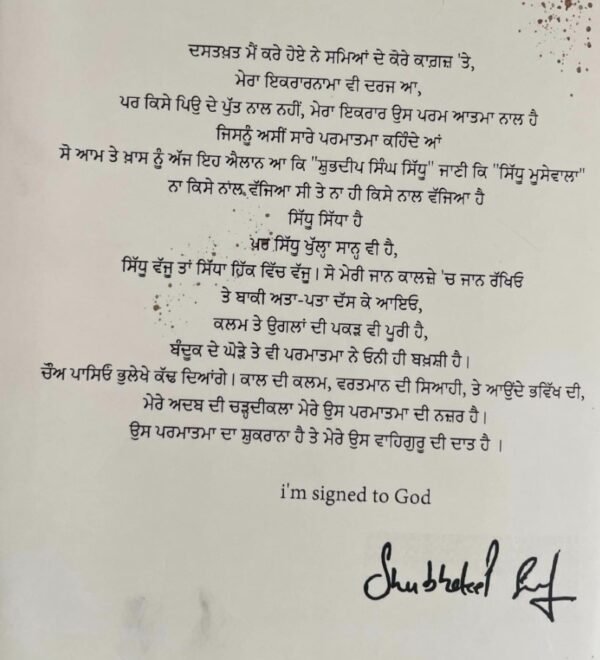 ਦਸਤਖ਼ਤ ਮੈਂ ਕਰੇ ਹੋਏ ਨੇ ਸਮਿਆਂ ਦੇ ਕੋਰੇ ਕਾਗਜ਼ 'ਤੇ,
ਮੇਰਾ ਇਕਰਾਰਨਾਮਾ ਵੀ ਦਰਜ ਆ,
ਪਰ ਕਿਸੇ ਪਿਓ ਦੇ ਪੁੱਤ ਨਾਲ ਨਹੀਂ, ਮੇਰਾ ਇਕਰਾਰ ਉਸ ਪਰਮ ਆਤਮਾ ਨਾਲ ਹੈ
ਜਿਸਨੂੰ ਅਸੀਂ ਸਾਰੇ ਪਰਮਾਤਮਾ ਕਹਿੰਦੇ ਆਂ
ਸੋ ਆਮ ਤੇ ਖ਼ਾਸ ਨੂੰ ਅੱਜ ਇਹ ਐਲਾਨ ਆ ਕਿ "ਸ਼ੁਭਦੀਪ ਸਿੰਘ ਸਿੱਧੂ" ਜਾਣੀ ਕਿ "ਸਿੱਧੂ ਮੂਸੇਵਾਲਾ"
ਨਾ ਕਿਸੇ ਨਾਂਲ ਵੱਜਿਆ ਸੀ ਤੇ ਨਾ ਹੀ ਕਿਸੇ ਨਾਲ ਵੱਜਿਆ ਹੈ
ਸਿੱਧੂ ਸਿੱਧਾ ਹੈ
ਪਰ ਸਿੱਧੂ ਖੁੱਲ੍ਹਾ ਸਾਨ੍ਹ ਵੀ ਹੈ,
ਸਿੱਧੂ ਵੱਜੂ ਤਾਂ ਸਿੱਧਾ ਹਿੱਕ ਵਿੱਚ ਵੱਜੂ। ਸੋ ਮੇਰੀ ਜਾਨ ਕਾਲਜ਼ੇ 'ਚ ਜਾਨ ਰੱਖਿਓ
ਤੇ ਬਾਕੀ ਅਤਾ-ਪਤਾ ਦੱਸ ਕੇ ਆਇਓ,
ਕਲਮ ਤੇ ਉਗਲਾਂ ਦੀ ਪਕੜ ਵੀ ਪੂਰੀ ਹੈ,
ਬੰਦੂਕ ਦੇ ਘੋੜੇ ਤੇ ਵੀ ਪਰਮਾਤਮਾ ਨੇ ਓਨੀ ਹੀ ਬਖ਼ਸ਼ੀ ਹੈ।
ਚੌਅ ਪਾਸਿਓ ਭੁਲੇਖੇ ਕੱਢ ਦਿਆਂਗੇ। ਕਾਲ ਦੀ ਕਲਮ, ਵਰਤਮਾਨ ਦੀ ਸਿਆਹੀ, ਤੇ ਆਉਂਦੇ ਭਵਿੱਖ ਦੀ,
ਮੇਰੇ ਅਦਬ ਦੀ ਚੜ੍ਹਦੀਕਲਾ ਮੇਰੇ ਉਸ ਪਰਮਾਤਮਾ ਦੀ ਨਜ਼ਰ ਹੈ।
ਉਸ ਪਰਮਾਤਮਾ ਦਾ ਸ਼ੁਕਰਾਨਾ ਹੈ ਤੇ ਮੇਰੇ ਉਸ ਵਾਹਿਗੁਰੂ ਦੀ ਦਾਤ ਹੈ ।
i'm signed to God